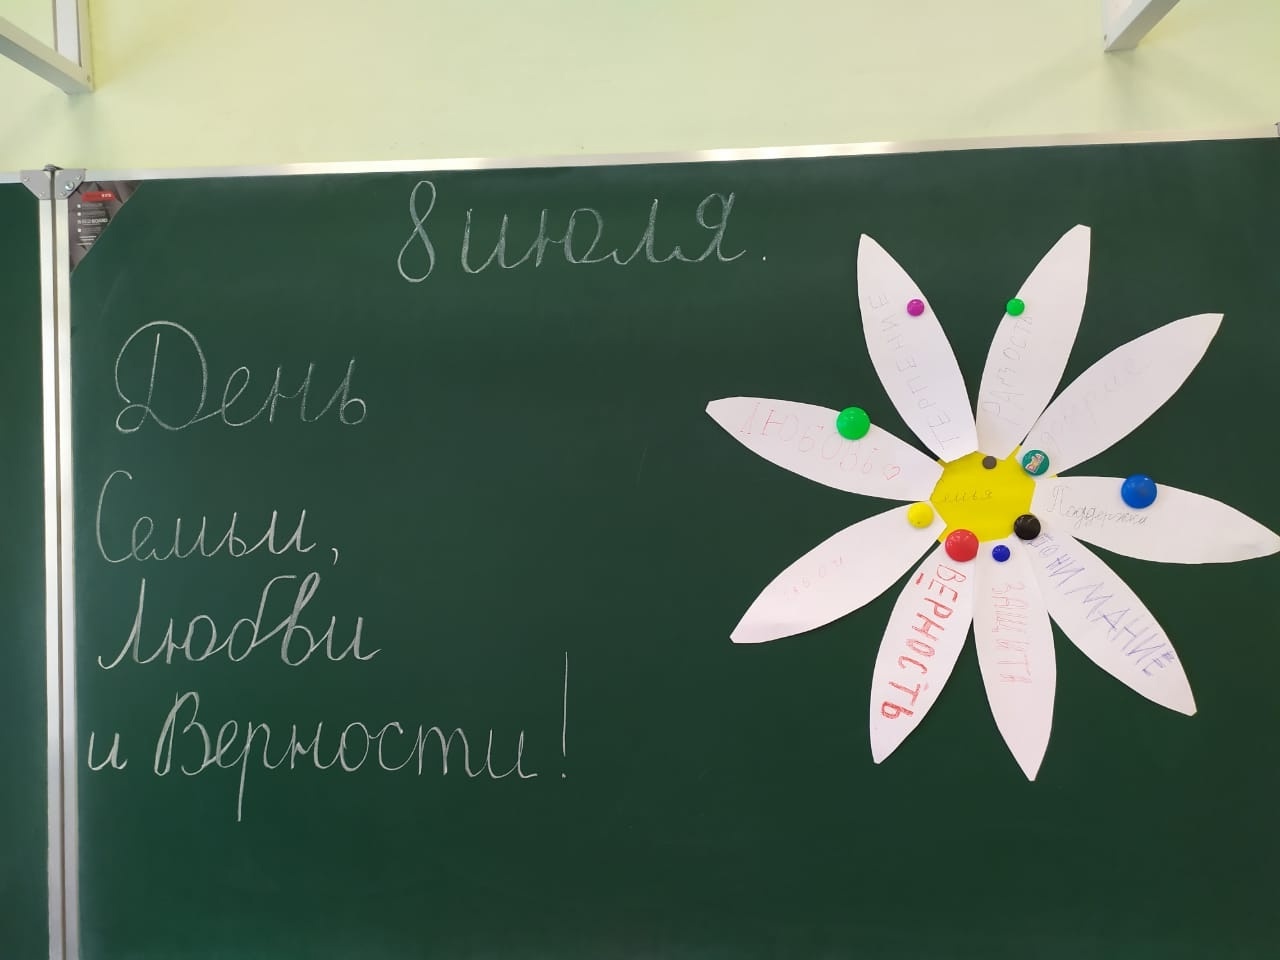 8 июля.
День
Семьи,
Любви
и Верности!
ТЕРПЕНИЕ
РАДОСТЬ
доверие
Поддержка
ПОНИМАНИЕ
ЗАЩИТА
ВЕРНОСТЬ
ЛЮБОВЬ